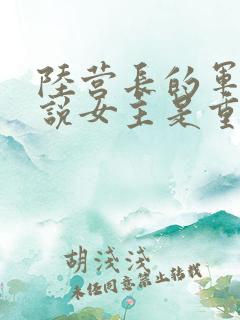 陸营長的軍
説女主是重
胡淺淺
未经同意禁止转载